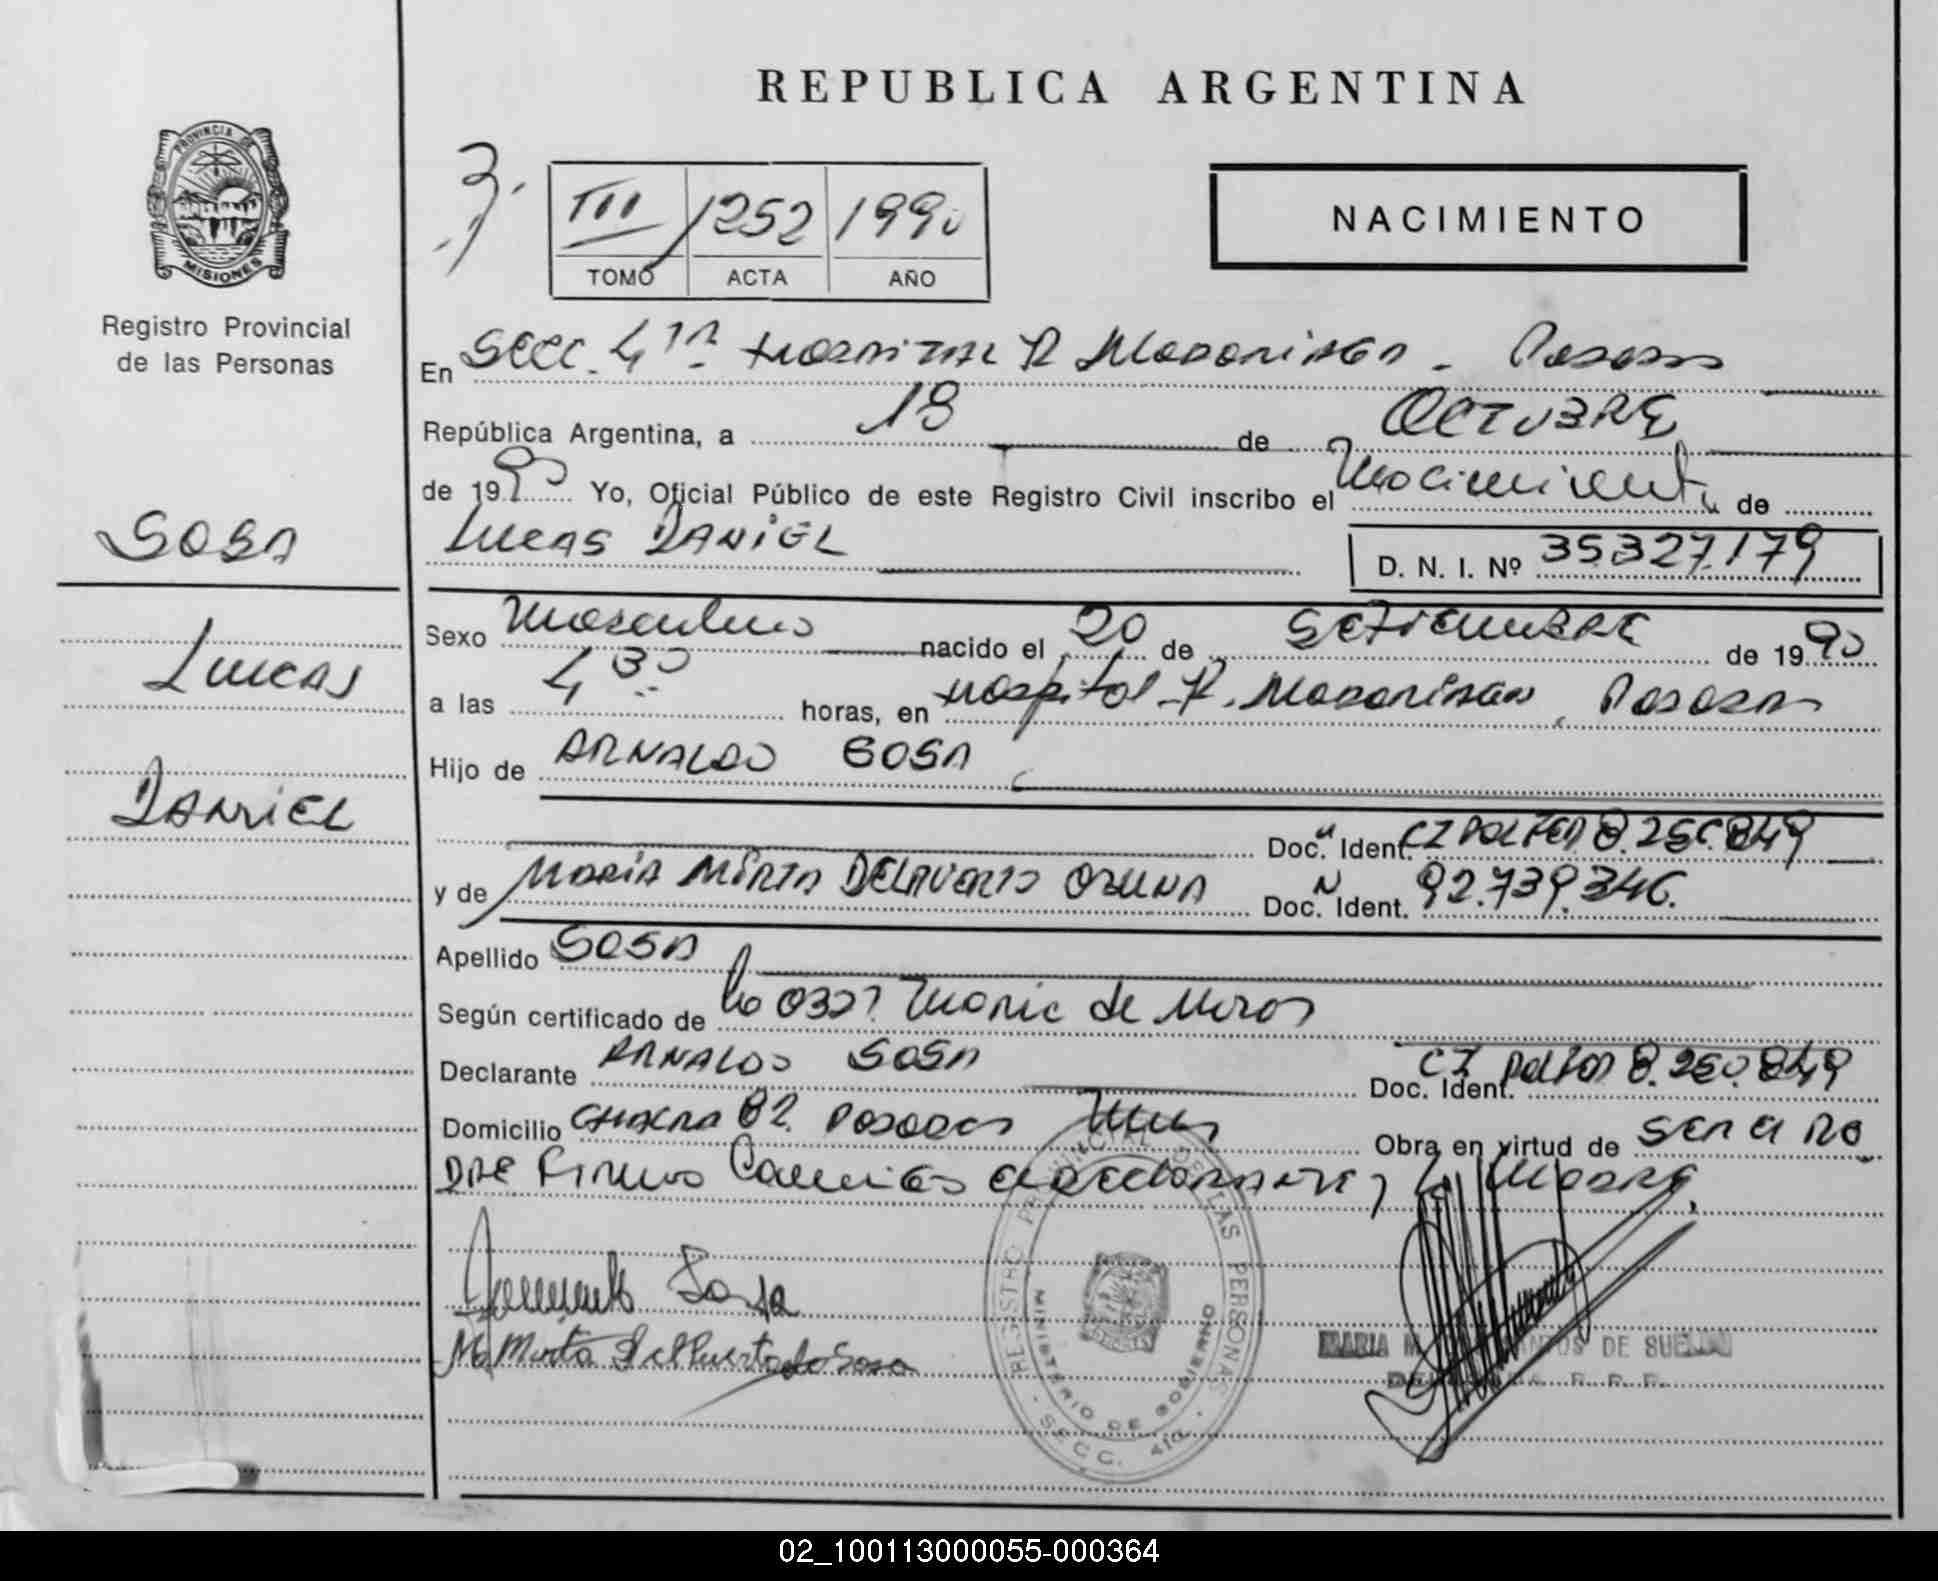 REPUBLICA ARGENTINA
PROVINCIA DE
MISIONES
Registro Provincial
de las Personas
3
III 1252 1990
TOMO ACTA AÑO
NACIMIENTO
En Secc. 4ta Hospital R Madariaga - Posadas
República Argentina, a 18 de OCTUBRE
de 1990 Yo, Oficial Público de este Registro Civil inscribo el Nacimiento de
LUCAS DANIEL
D. N. I. Nº 35.327.179
SOSA
LUCAS
DANIEL
Sexo Masculino nacido el 20 de SETIEMBRE de 1990
a las 4 30 horas, en Hospital R. Madariaga, Posadas
Hijo de ARNALDO SOSA
Doc. Ident. CI POL FED 8.250.849
y de MARIA MIRTA DELPUERTO OZUNA Doc. Ident. 92.739.346.
Apellido SOSA
Según certificado de de Miros
Declarante ARNALDO SOSA Doc. Ident. CI Pol Fed 8.250.849
Domicilio CHACRA 82. POSADAS Mnes Obra en virtud de ser el PA
DRE Firman Declarante y la Madre.
Sosa
Ma Mirta DelPuerto de Sosa
REGISTRO PROVINCIAL DE LAS PERSONAS
MINISTERIO DE GOBIERNO
SECC. 4ta
MARIA M DE
02_100113000055-000364